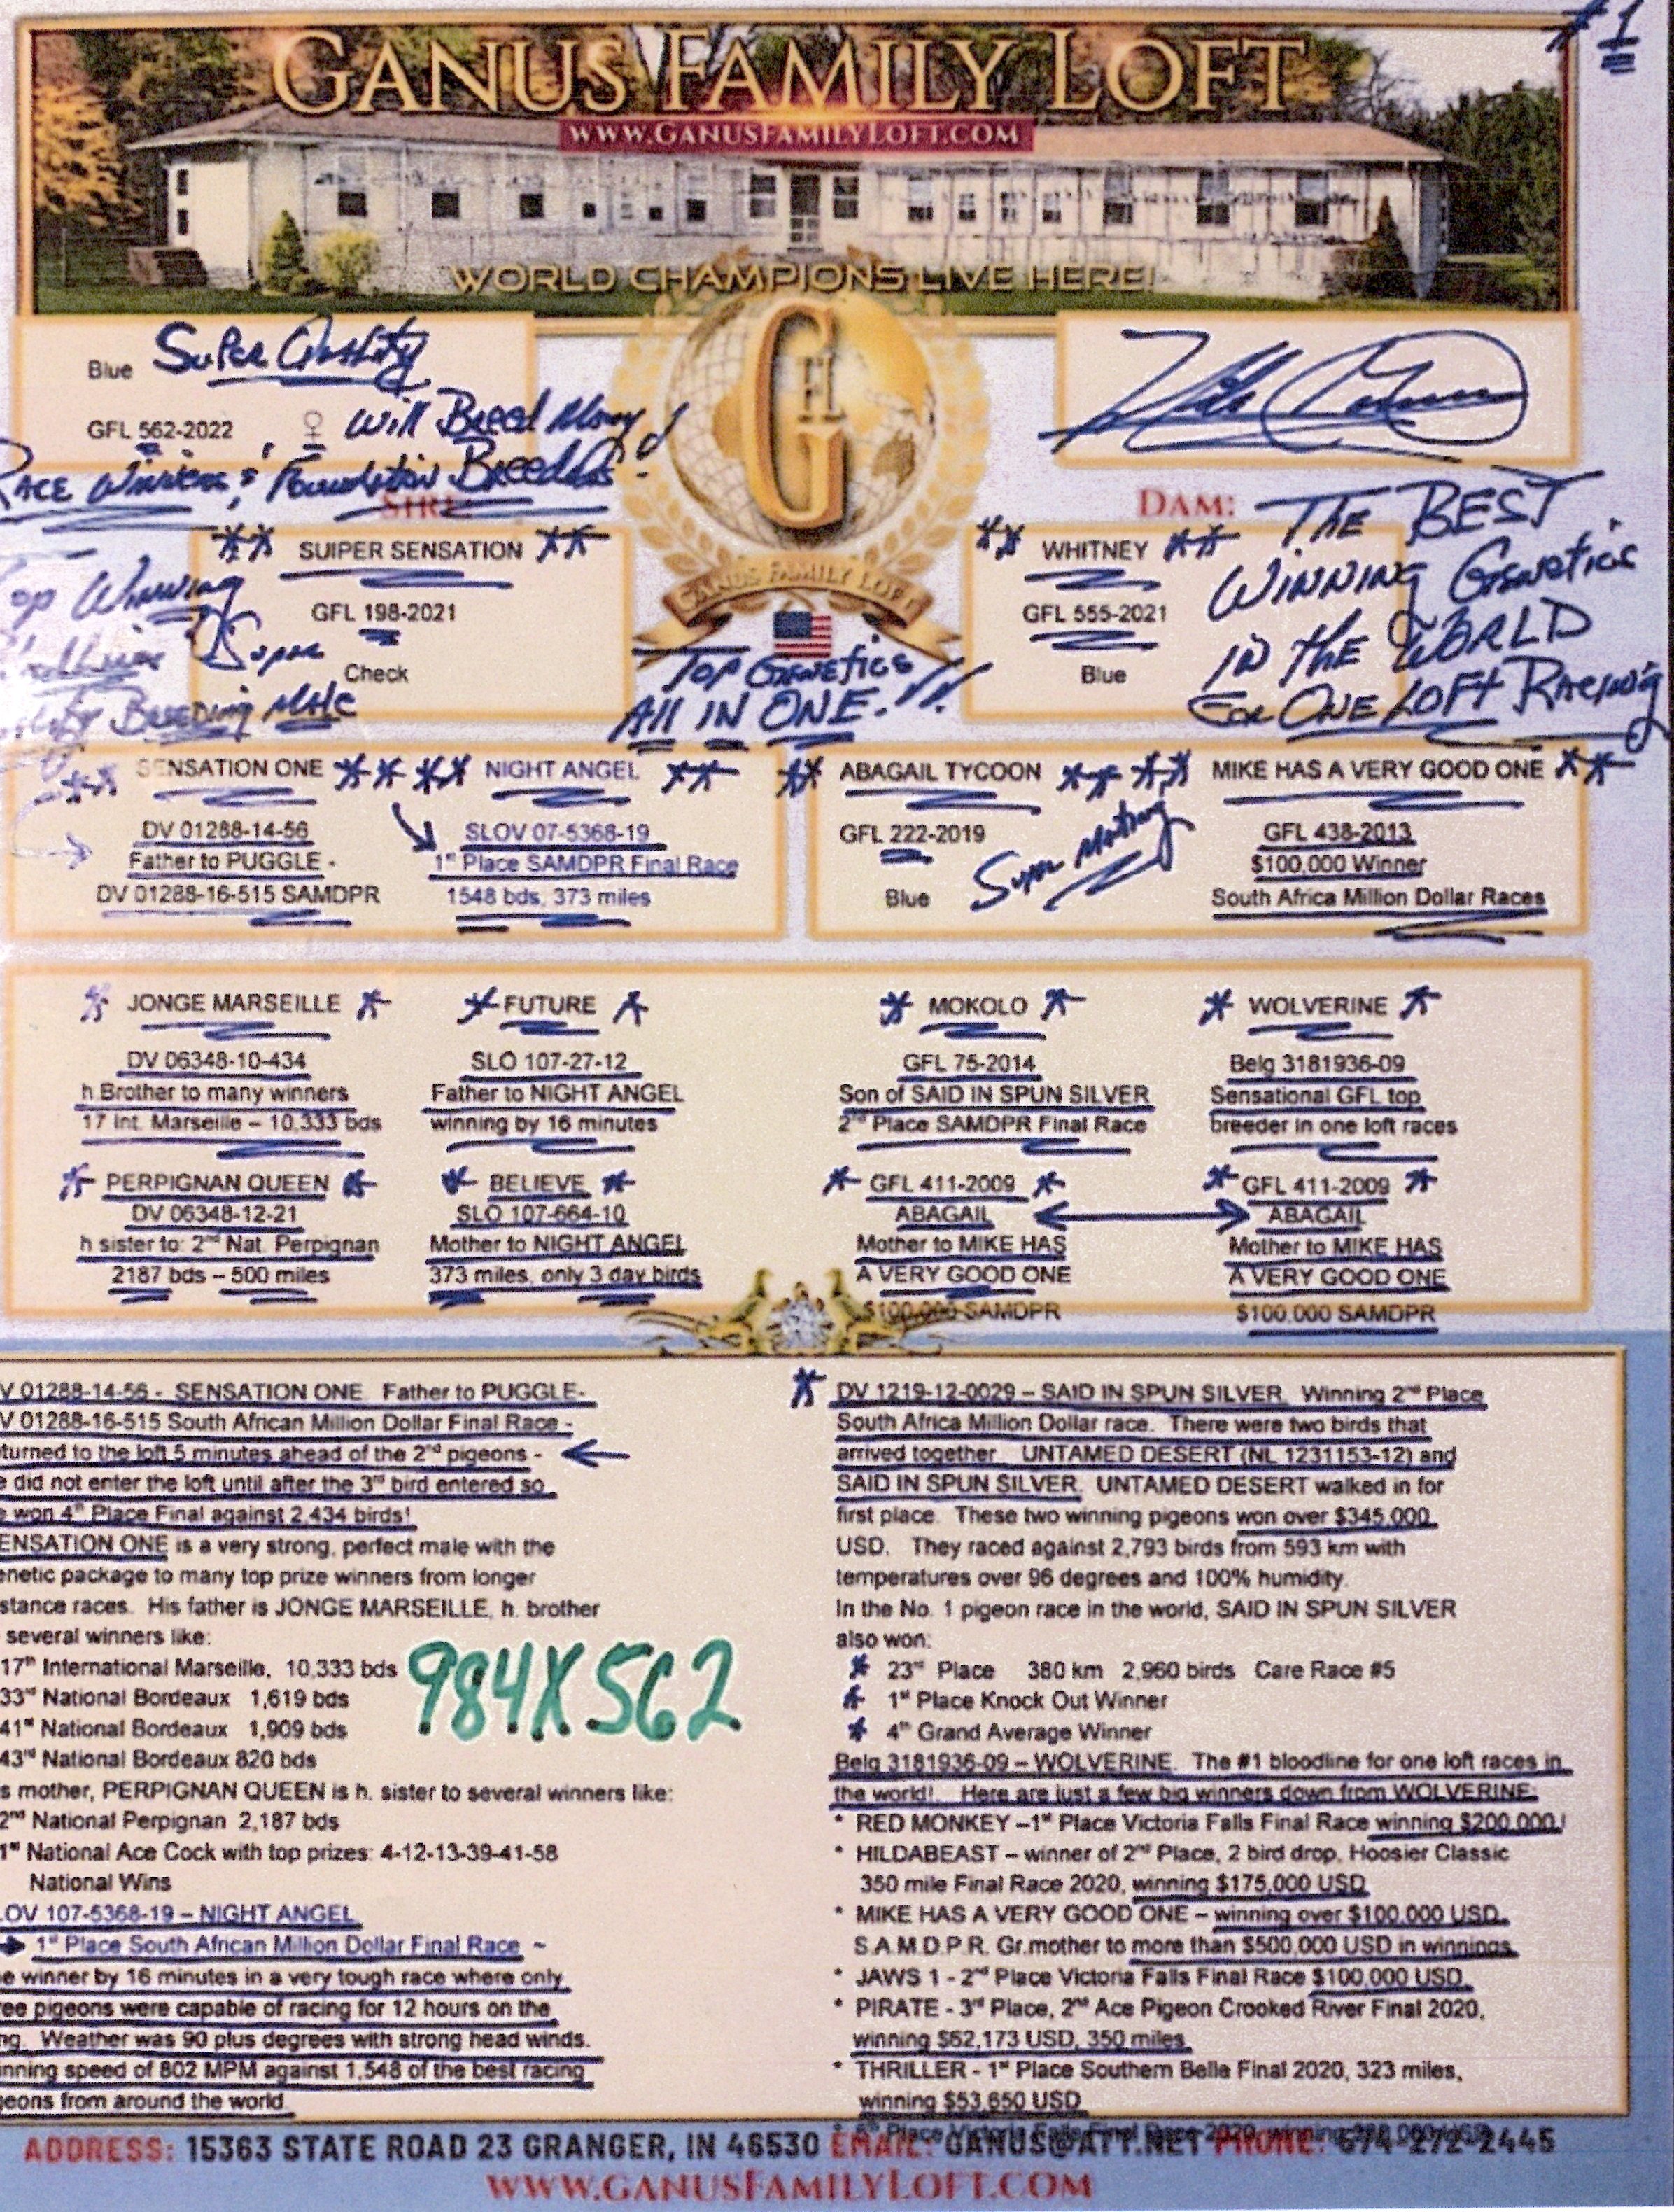 #1
GANUS FAMILY LOFT
WWW.GANUSFAMILYLOFT.COM
WORLD CHAMPIONS LIVE HERE!
Blue Super Quality
GFL 562-2022 ♀ Will Breed Many
RACE Winners & Foundation Breeders!
SIRE:
** SUIPER SENSATION **
GFL 198-2021
Check
Winning
Super
Breeding Male
G
FL
GANUS FAMILY LOFT
TOP Genetics
All IN ONE.!!
DAM: THE BEST
** WHITNEY ** WINNING Genetics
GFL 555-2021 IN the WORLD
Blue For ONE LOFT RACING
** SENSATION ONE **
DV 01288-14-56
Father to PUGGLE -
DV 01288-16-515 SAMDPR
** NIGHT ANGEL **
SLOV 07-5368-19
1st Place SAMDPR Final Race
1548 bds, 373 miles
** ABAGAIL TYCOON **
GFL 222-2019
Blue Super Mating
** MIKE HAS A VERY GOOD ONE **
GFL 438-2013
$100,000 Winner
South Africa Million Dollar Races
* JONGE MARSEILLE *
DV 06348-10-434
h.Brother to many winners
17 Int. Marseille – 10,333 bds
* FUTURE *
SLO 107-27-12
Father to NIGHT ANGEL
winning by 16 minutes
* MOKOLO *
GFL 75-2014
Son of SAID IN SPUN SILVER
2nd Place SAMDPR Final Race
* WOLVERINE *
Belg 3181936-09
Sensational GFL top
breeder in one loft races
* PERPIGNAN QUEEN *
DV 06348-12-21
h sister to: 2nd Nat. Perpignan
2187 bds – 500 miles
* BELIEVE *
SLO 107-664-10
Mother to NIGHT ANGEL
373 miles, only 3 day birds
* GFL 411-2009 *
ABAGAIL
Mother to MIKE HAS
A VERY GOOD ONE
$100,000 SAMDPR
* GFL 411-2009 *
ABAGAIL
Mother to MIKE HAS
A VERY GOOD ONE
$100,000 SAMDPR
V 01288-14-56 - SENSATION ONE. Father to PUGGLE-
V 01288-16-515 South African Million Dollar Final Race -
turned to the loft 5 minutes ahead of the 2nd pigeons -
e did not enter the loft until after the 3rd bird entered so
e won 4th Place Final against 2,434 birds!
ENSATION ONE is a very strong, perfect male with the
enetic package to many top prize winners from longer
stance races. His father is JONGE MARSEILLE, h. brother
several winners like:
17th International Marseille, 10,333 bds
33rd National Bordeaux 1,619 bds
41st National Bordeaux 1,909 bds
43rd National Bordeaux 820 bds
984X562
s mother, PERPIGNAN QUEEN is h. sister to several winners like:
2nd National Perpignan 2,187 bds
1st National Ace Cock with top prizes: 4-12-13-39-41-58
National Wins
LOV 107-5368-19 – NIGHT ANGEL
1st Place South African Million Dollar Final Race ~
e winner by 16 minutes in a very tough race where only
ree pigeons were capable of racing for 12 hours on the
ng. Weather was 90 plus degrees with strong head winds.
inning speed of 802 MPM against 1,548 of the best racing
geons from around the world.
* DV 1219-12-0029 – SAID IN SPUN SILVER. Winning 2nd Place
South Africa Million Dollar race. There were two birds that
arrived together. UNTAMED DESERT (NL 1231153-12) and
SAID IN SPUN SILVER. UNTAMED DESERT walked in for
first place. These two winning pigeons won over $345,000
USD. They raced against 2,793 birds from 593 km with
temperatures over 96 degrees and 100% humidity.
In the No. 1 pigeon race in the world, SAID IN SPUN SILVER
also won:
* 23rd Place 380 km 2,960 birds Care Race #5
* 1st Place Knock Out Winner
* 4th Grand Average Winner
Belg 3181936-09 – WOLVERINE. The #1 bloodline for one loft races in
the world!. Here are just a few big winners down from WOLVERINE:
* RED MONKEY –1st Place Victoria Falls Final Race winning $200,000!
* HILDABEAST – winner of 2nd Place, 2 bird drop, Hoosier Classic
350 mile Final Race 2020, winning $175,000 USD
* MIKE HAS A VERY GOOD ONE – winning over $100,000 USD.
S.A.M.D.P.R. Gr.mother to more than $500,000 USD in winnings
* JAWS 1 - 2nd Place Victoria Falls Final Race $100,000 USD.
* PIRATE - 3rd Place, 2nd Ace Pigeon Crooked River Final 2020,
winning $62,173 USD, 350 miles
* THRILLER - 1st Place Southern Belle Final 2020, 323 miles,
winning $53,650 USD
Place Victoria Falls Final Race 2020, winning
ADDRESS: 15363 STATE ROAD 23 GRANGER, IN 46530 EMAIL: GANUS@ATT.NET PHONE: 574-272-2445
WWW.GANUSFAMILYLOFT.COM